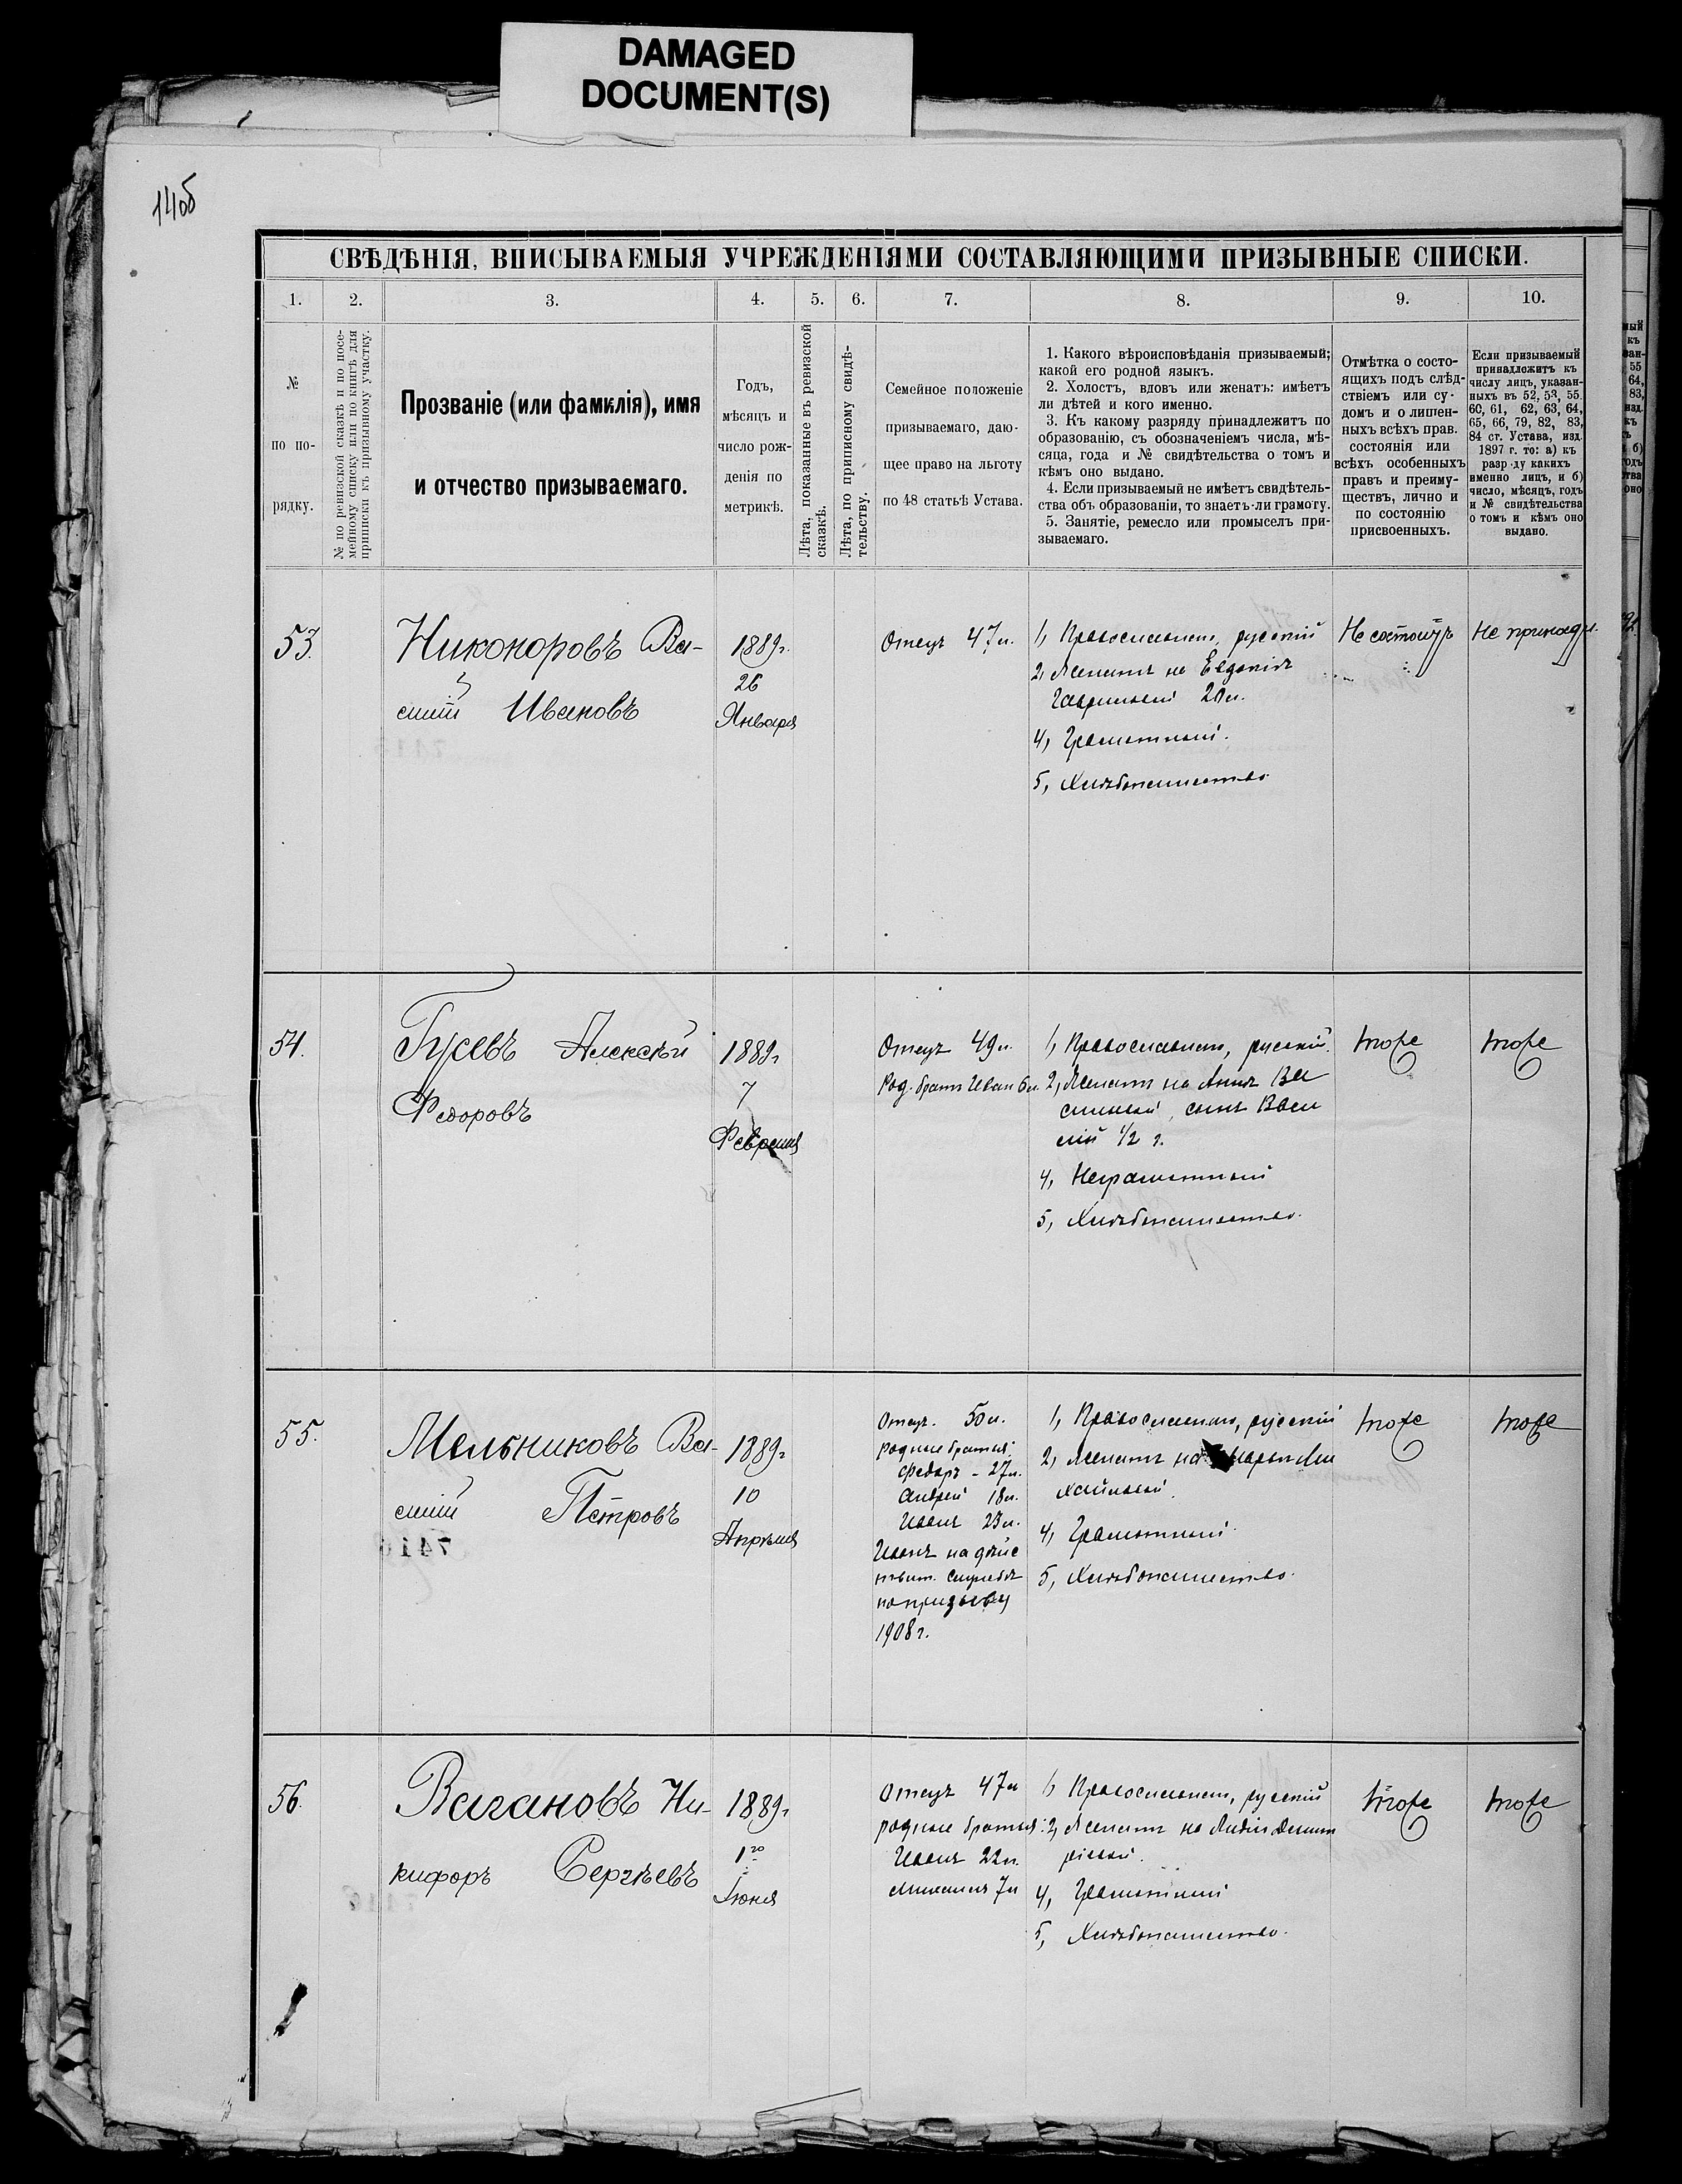 DAMAGED
DOCUMENT(S)
14об
СВѢДѢНІЯ, ВПИСЫВАЕМЫЯ УЧРЕЖДЕНІЯМИ СОСТАВЛЯЮЩИМИ ПРИЗЫВНЫЕ СПИСКИ.
1. 2. 3. 4. 5. 6. 7. 8. 9. 10.
№
по по-
рядку.
№ по ревизской сказкѣ и по посе-
мейному списку или по книгѣ для
приписки къ призывному участку.
Прозваніе (или фамилія), имя
и отчество призываемаго.
Годъ,
мѣсяцъ и
число рож-
денія по
метрикѣ.
Лѣта, показанные въ ревизской
сказкѣ.
Лѣта, по приписному свидѣ-
тельству.
Семейное положеніе
призываемаго, даю-
щее право на льготу
по 48 статьѣ Устава.
1. Какого вѣроисповѣданія призываемый;
какой его родной языкъ.
2. Холостъ, вдовъ или женатъ: имѣетъ
ли дѣтей и кого именно.
3. Къ какому разряду принадлежитъ по
образованію, съ обозначеніемъ числа, мѣ-
сяца, года и № свидѣтельства о томъ и
кѣмъ оно выдано.
4. Если призываемый не имѣетъ свидѣтель-
ства объ образованіи, то знаетъ-ли грамоту.
5. Занятіе, ремесло или промыселъ при-
зываемаго.
Отмѣтка о состо-
ящихъ подъ слѣд-
ствіемъ или су-
домъ и о лишен-
ныхъ всѣхъ прав.
состоянія или
всѣхъ особенныхъ
правъ и преиму-
ществъ, лично и
по состоянію
присвоенныхъ.
Если призываемый
принадлежитъ къ
числу лицъ, указан-
ныхъ въ 52, 53, 55.
60, 61, 62, 63, 64,
65, 66, 79, 82, 83,
84 ст. Устава, изд.
1897 г. то: а) къ
разр ду какихъ
именно лицъ, и б)
число, мѣсяцъ, годъ
и № свидѣтельства
о томъ и кѣмъ оно
выдано.
53.
Никоноровъ Ва-
силій Ивановъ
1889г.
26
Января
Отецъ 47л.
1, Православнаго, русскій
2, Женатъ на Евдокіи
Гавриловой 20л.
4, Грамотный.
5, Хлѣбопашество.
Не состоитъ
Не принадл.
54.
Гусевъ Алексѣй
Федоровъ
1889г
7
Февраля
Отецъ 49л.
Род. братъ Иван 6л.
1, Православнаго, русскій.
2, Женатъ на Аннѣ Ва
сильевой, сынъ Васи
лій 1/2 г.
4, Неграмотный
5, Хлѣбопашество.
тоже
тоже
55.
Мельниковъ Ва-
силій Петровъ
1889г
10
Апрѣля
Отецъ. 50л.
родные братья:
Федоръ - 27л.
Андрей 18л.
Иванъ 23л.
Иванъ на дѣйс
твит. службѣ
по призыву
1908г.
1, Православнаго, русскій
2, Женатъ на Марьи Ми
хайловой.
4, Грамотный.
5, Хлѣбопашество.
тоже
тоже
56.
Вагановъ Ни-
кифоръ Сергѣевъ
1889г.
1го
Іюня
Отецъ 47л
родные братья:
Иванъ 22л.
Михаилъ 7л
1, Православнаго, русскій
2, Женатъ на Лидіи Димит
ріевой.
4, Грамотный
5, Хлѣбопашество.
тоже
тоже